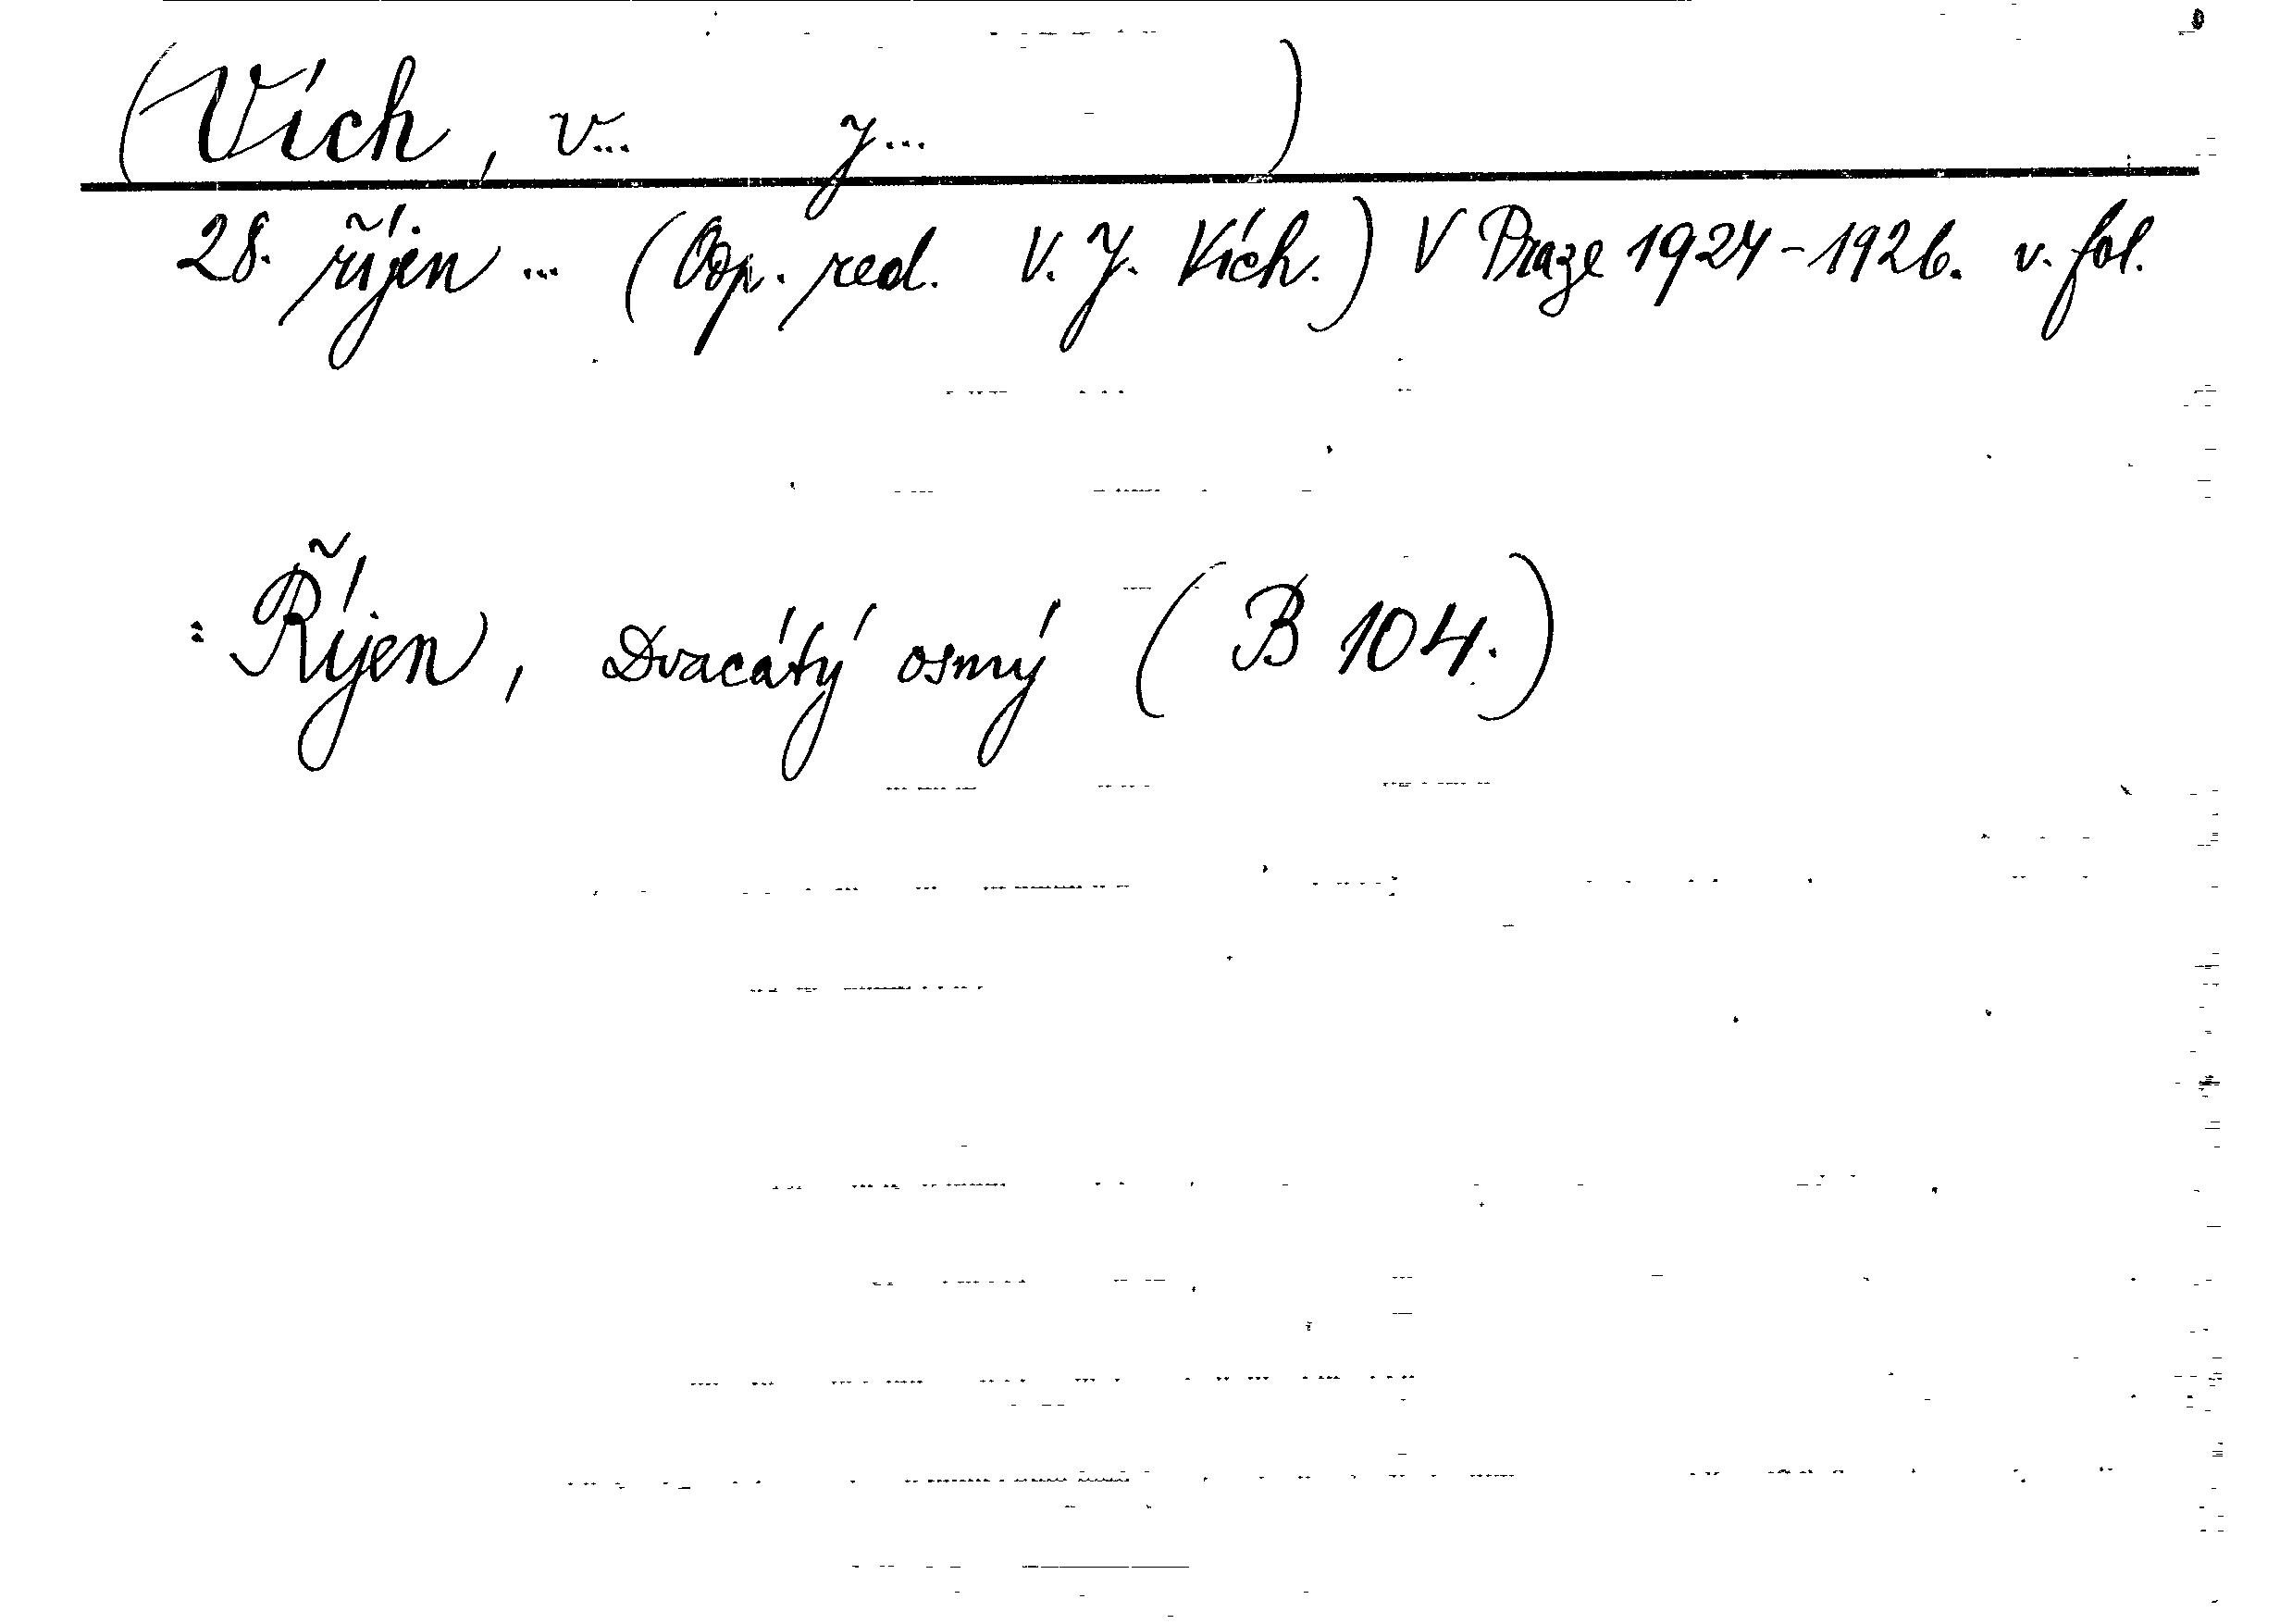 (Vích, V... J... )
28. říjen ... (Odp. red. V. J. Vích.) V Praze 1924-1926. v. fol.
: Říjen, Dvacátý osmý (B 104.)